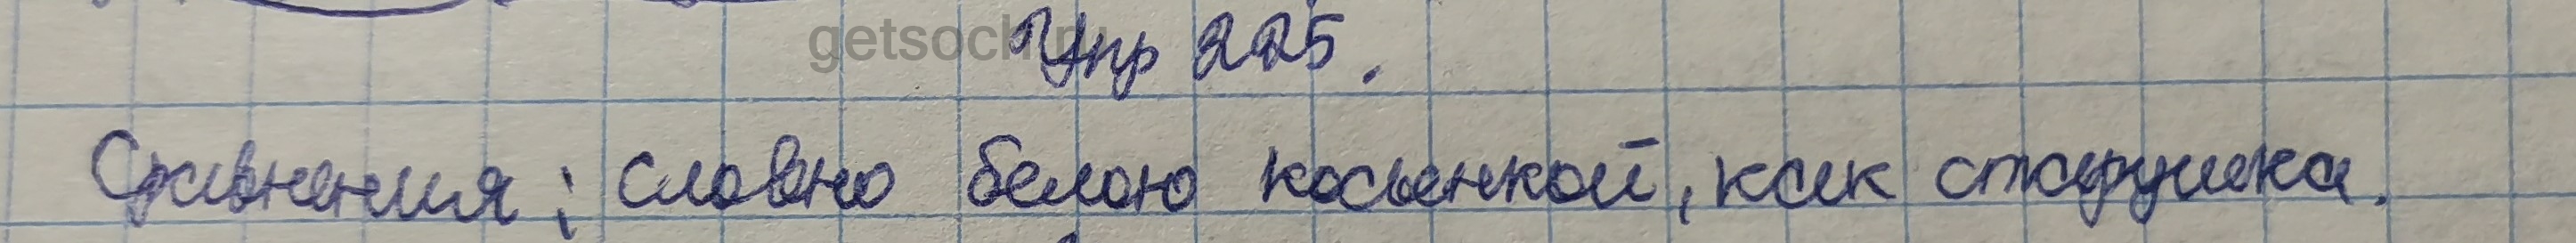 Упр 225.
Сравнения: словно белою косынкой, как старушка.